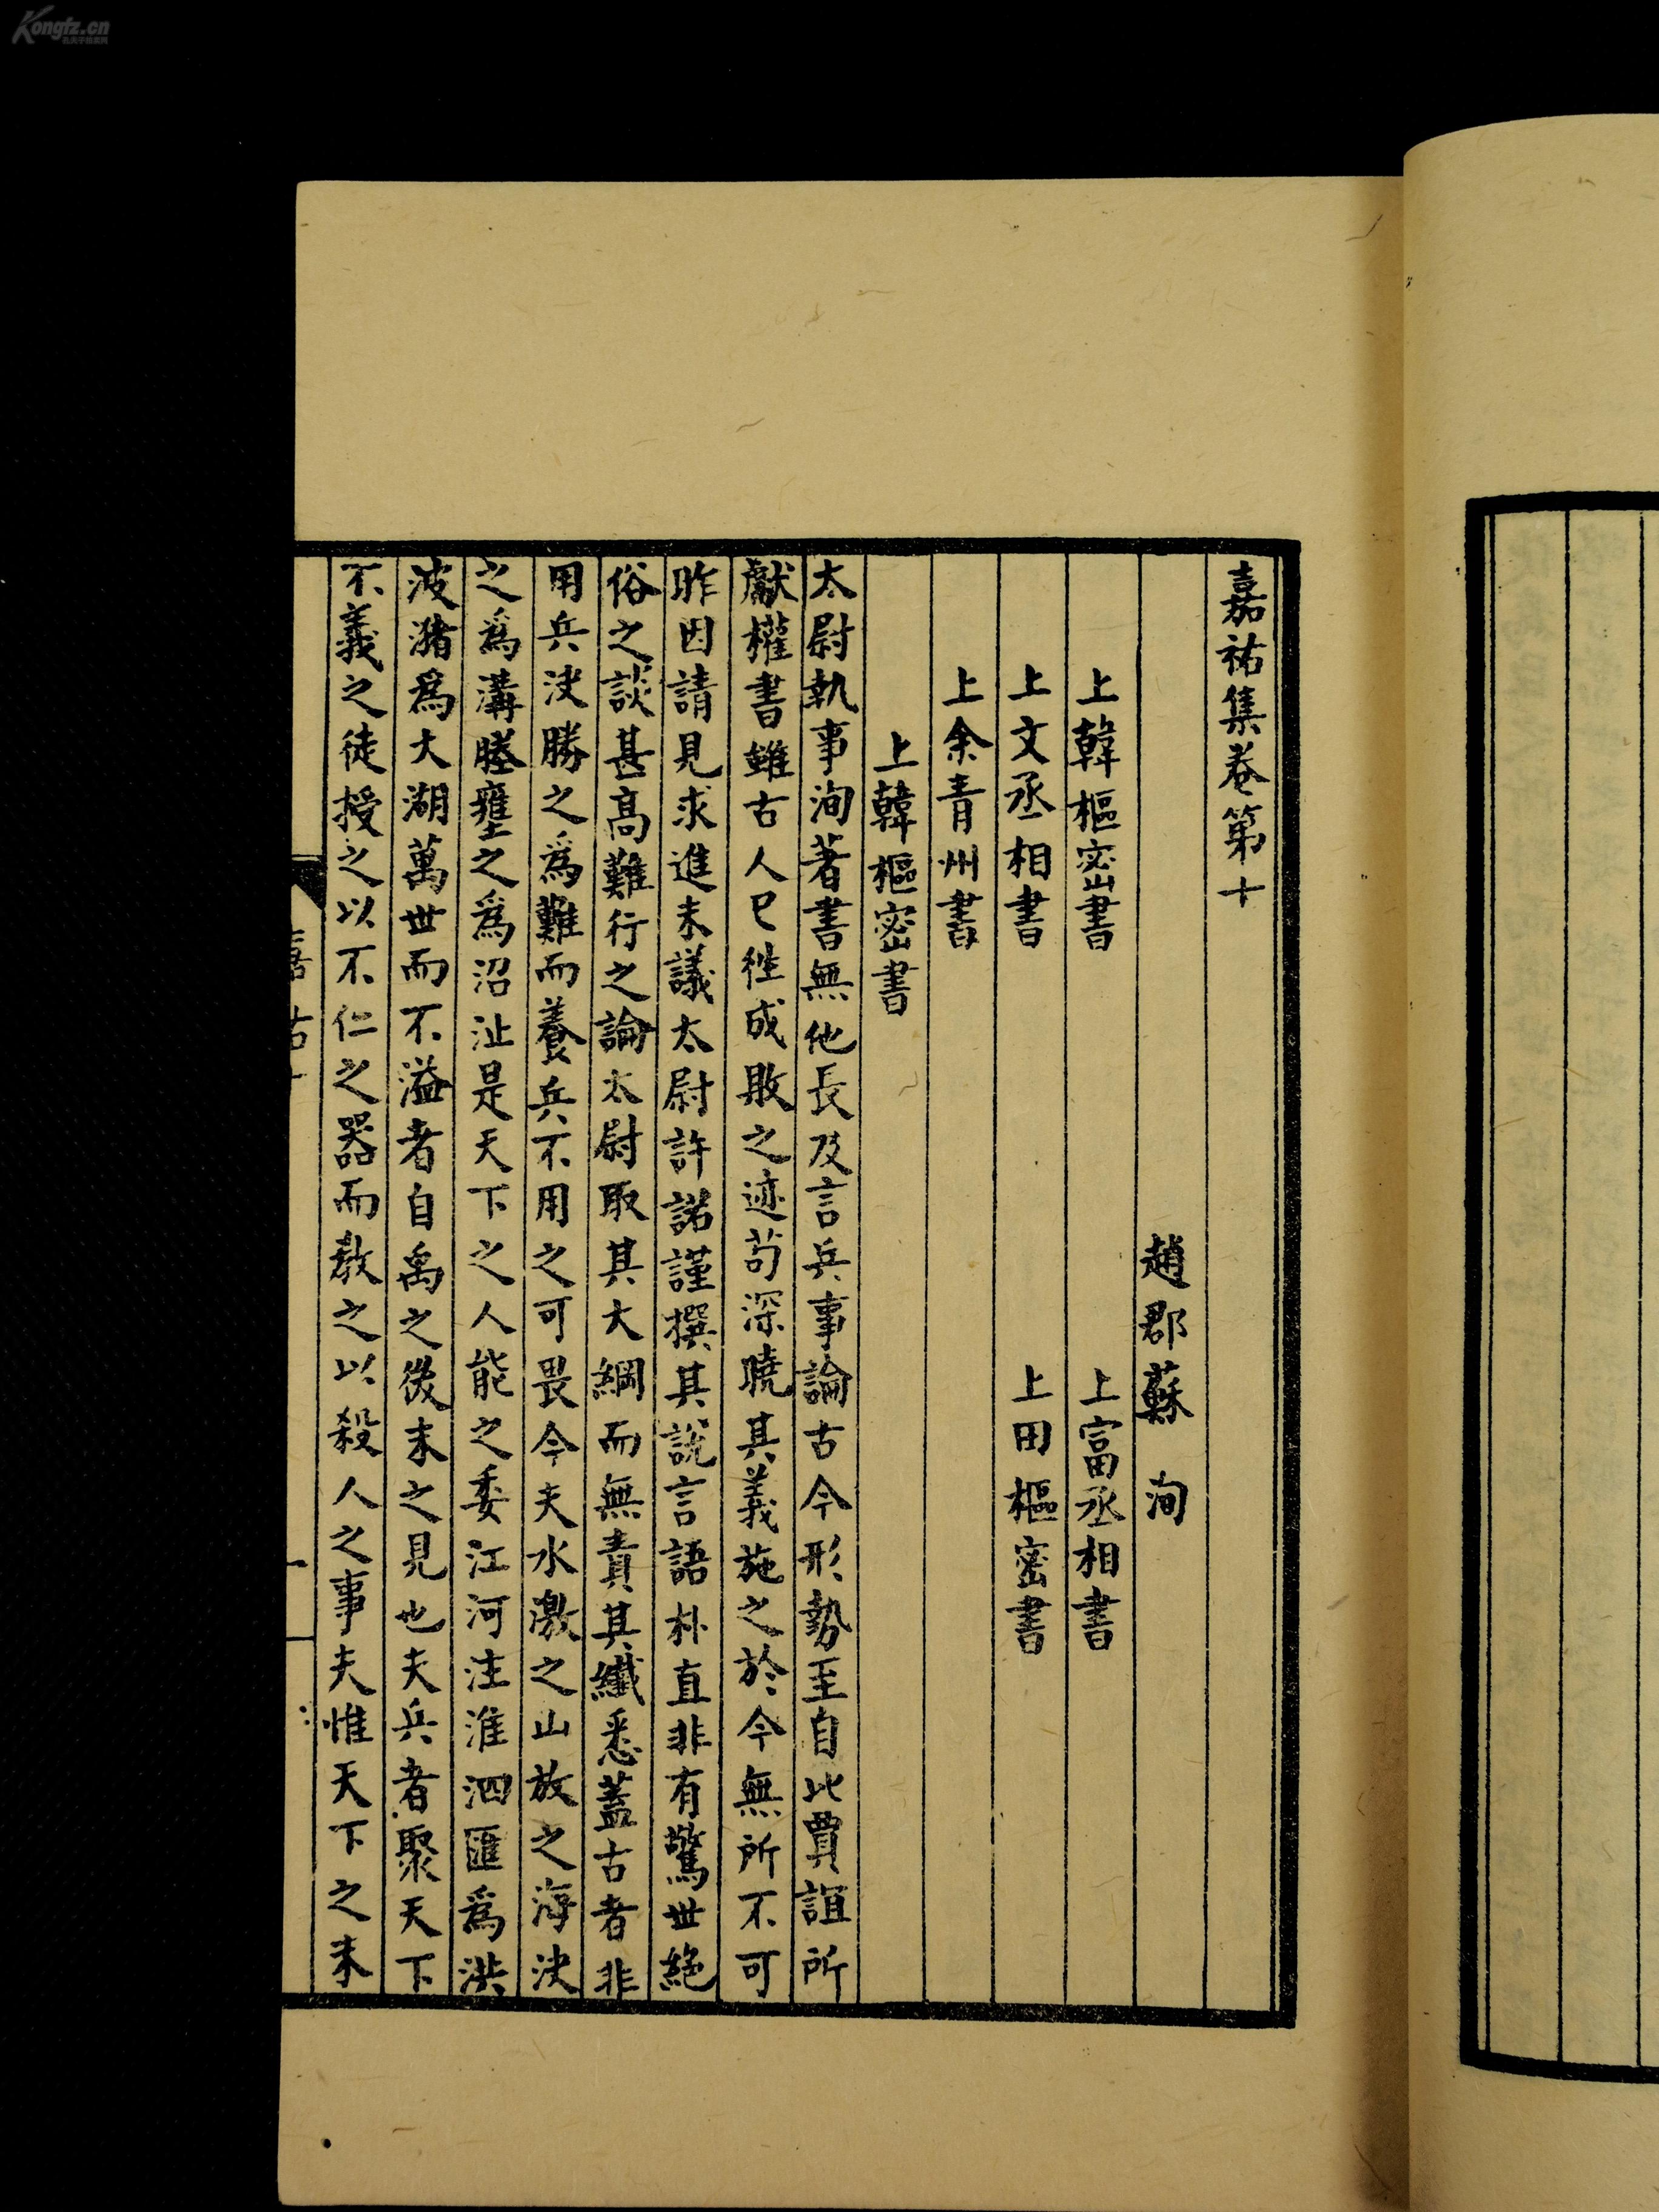 嘉祐集卷第十
趙郡蘇洵
上韓樞密書 上富丞相書
上文丞相書 上田樞密書
上余青州書
上韓樞密書
太尉執事洵著書無他長及言兵事論古今形勢至自比賈誼所
獻權書雖古人已徃成敗之迹苟深曉其義施之於今無所不可
昨因請見求進末議太尉許諾謹撰其說言語朴直非有驚世絕
俗之談甚高難行之論太尉取其大綱而無責其纖悉蓋古者非
用兵决勝之爲難而養兵不用之可畏今夫水激之山放之海决
之爲溝塍壅之爲沼沚是天下之人能之委江河注淮泗匯爲洪
波瀦爲大湖萬世而不溢者自禹之後未之見也夫兵者聚天下
不義之徒授之以不仁之器而敎之以殺人之事夫惟天下之未
Kongfz.cn